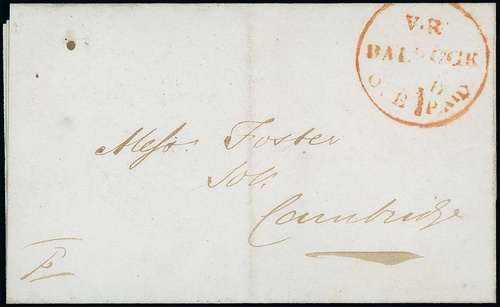 V.R
BALDOCK
1D
PAID
Messrs Foster
Sols
Cambridge